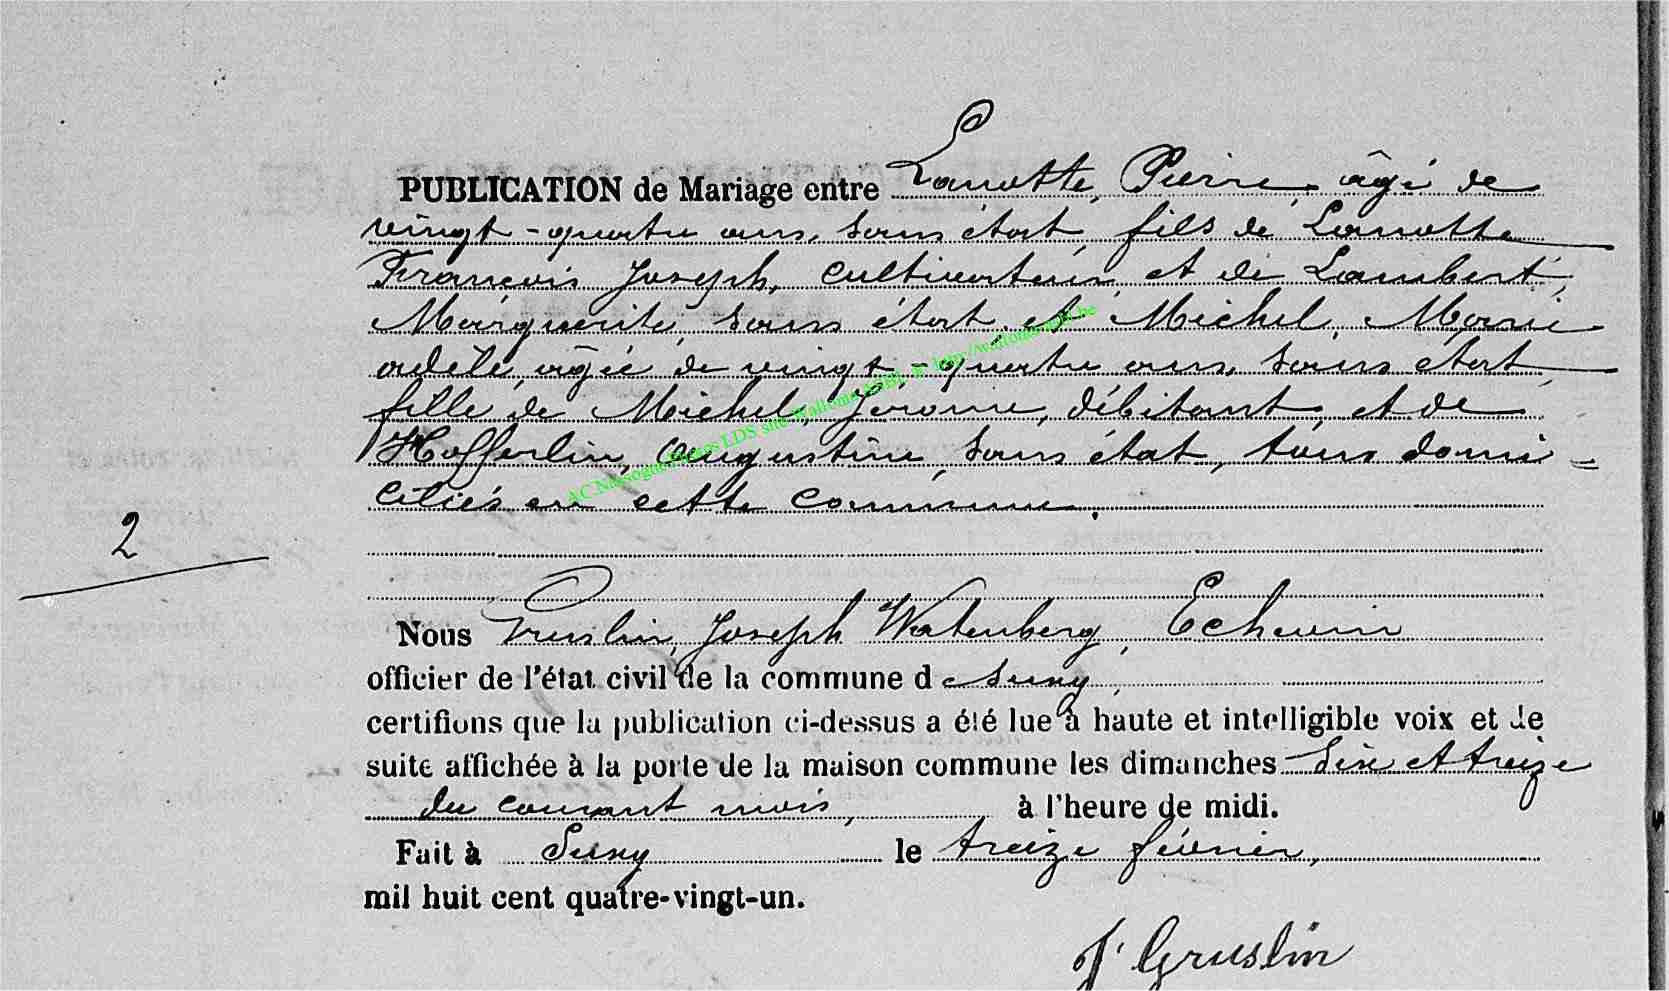 PUBLICATION de Mariage entre Lanotte, Pierre, âgé de
vingt-quatre ans, sans état, fils de Lanotte
François Joseph, cultivateur, et de Lambert,
Marguerite, sans état, et Michel, Marie
adèle, âgée de vingt-quatre ans, sans état,
fille de Michel, Jerome, débitant, et de
Hofferlin, Augustine, sans état, tous domi-
ciliés en cette commune.
2
Nous Gruslin, Joseph Watenberg, Echevin
officier de l'état civil de la commune d e Suxy,
certifions que la publication ci-dessus a été lue à haute et intelligible voix et de
suite affichée à la porte de la maison commune les dimanches Six et treize
du courant mois, à l'heure de midi.
Fait à Suxy le treize février,
mil huit cent quatre-vingt-un.
J Gruslin